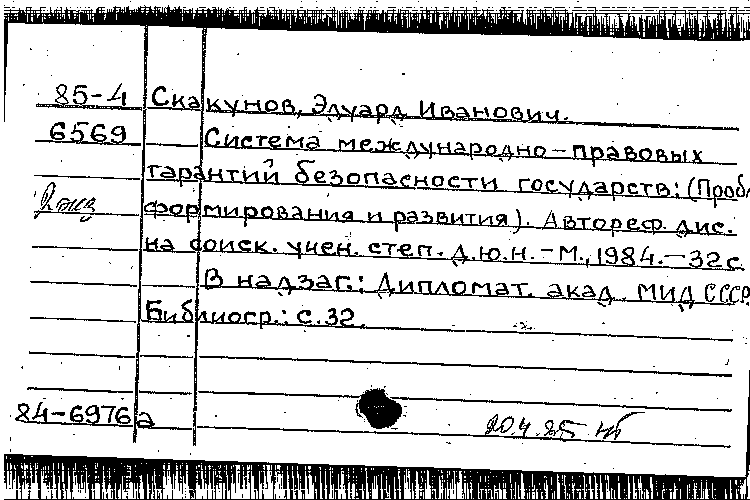 85-4 Скакунов, Эдуард Иванович.
6569 Система международно-правовых
гарантий безопасности государств: (Пробл
2 экз формирования и развития). Автореф. дис.
на соиск. учен. степ. д.ю.н. - М., 1984. - 32 с.
В надзаг.: Дипломат. акад. МИД СССР.
Библиогр.: с. 32.
84-6976а 20.4.85